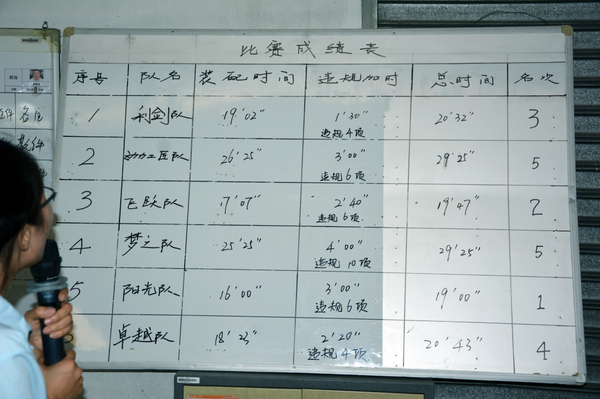 比赛成绩表
序号 队名 装配时间 违规加时 总时间 名次
1 利剑队 19'02" 1'30" 20'32" 3
违规4项
2 动力工匠队 26'25" 3'00" 29'25" 5
违规6项
3 飞跃队 17'07" 2'40" 19'47" 2
违规6项
4 梦之队 25'25" 4'00" 29'25" 5
违规10项
5 阳光队 16'00" 3'00" 19'00" 1
违规6项
卓越队 18'23" 2'20" 20'43" 4
违规4项